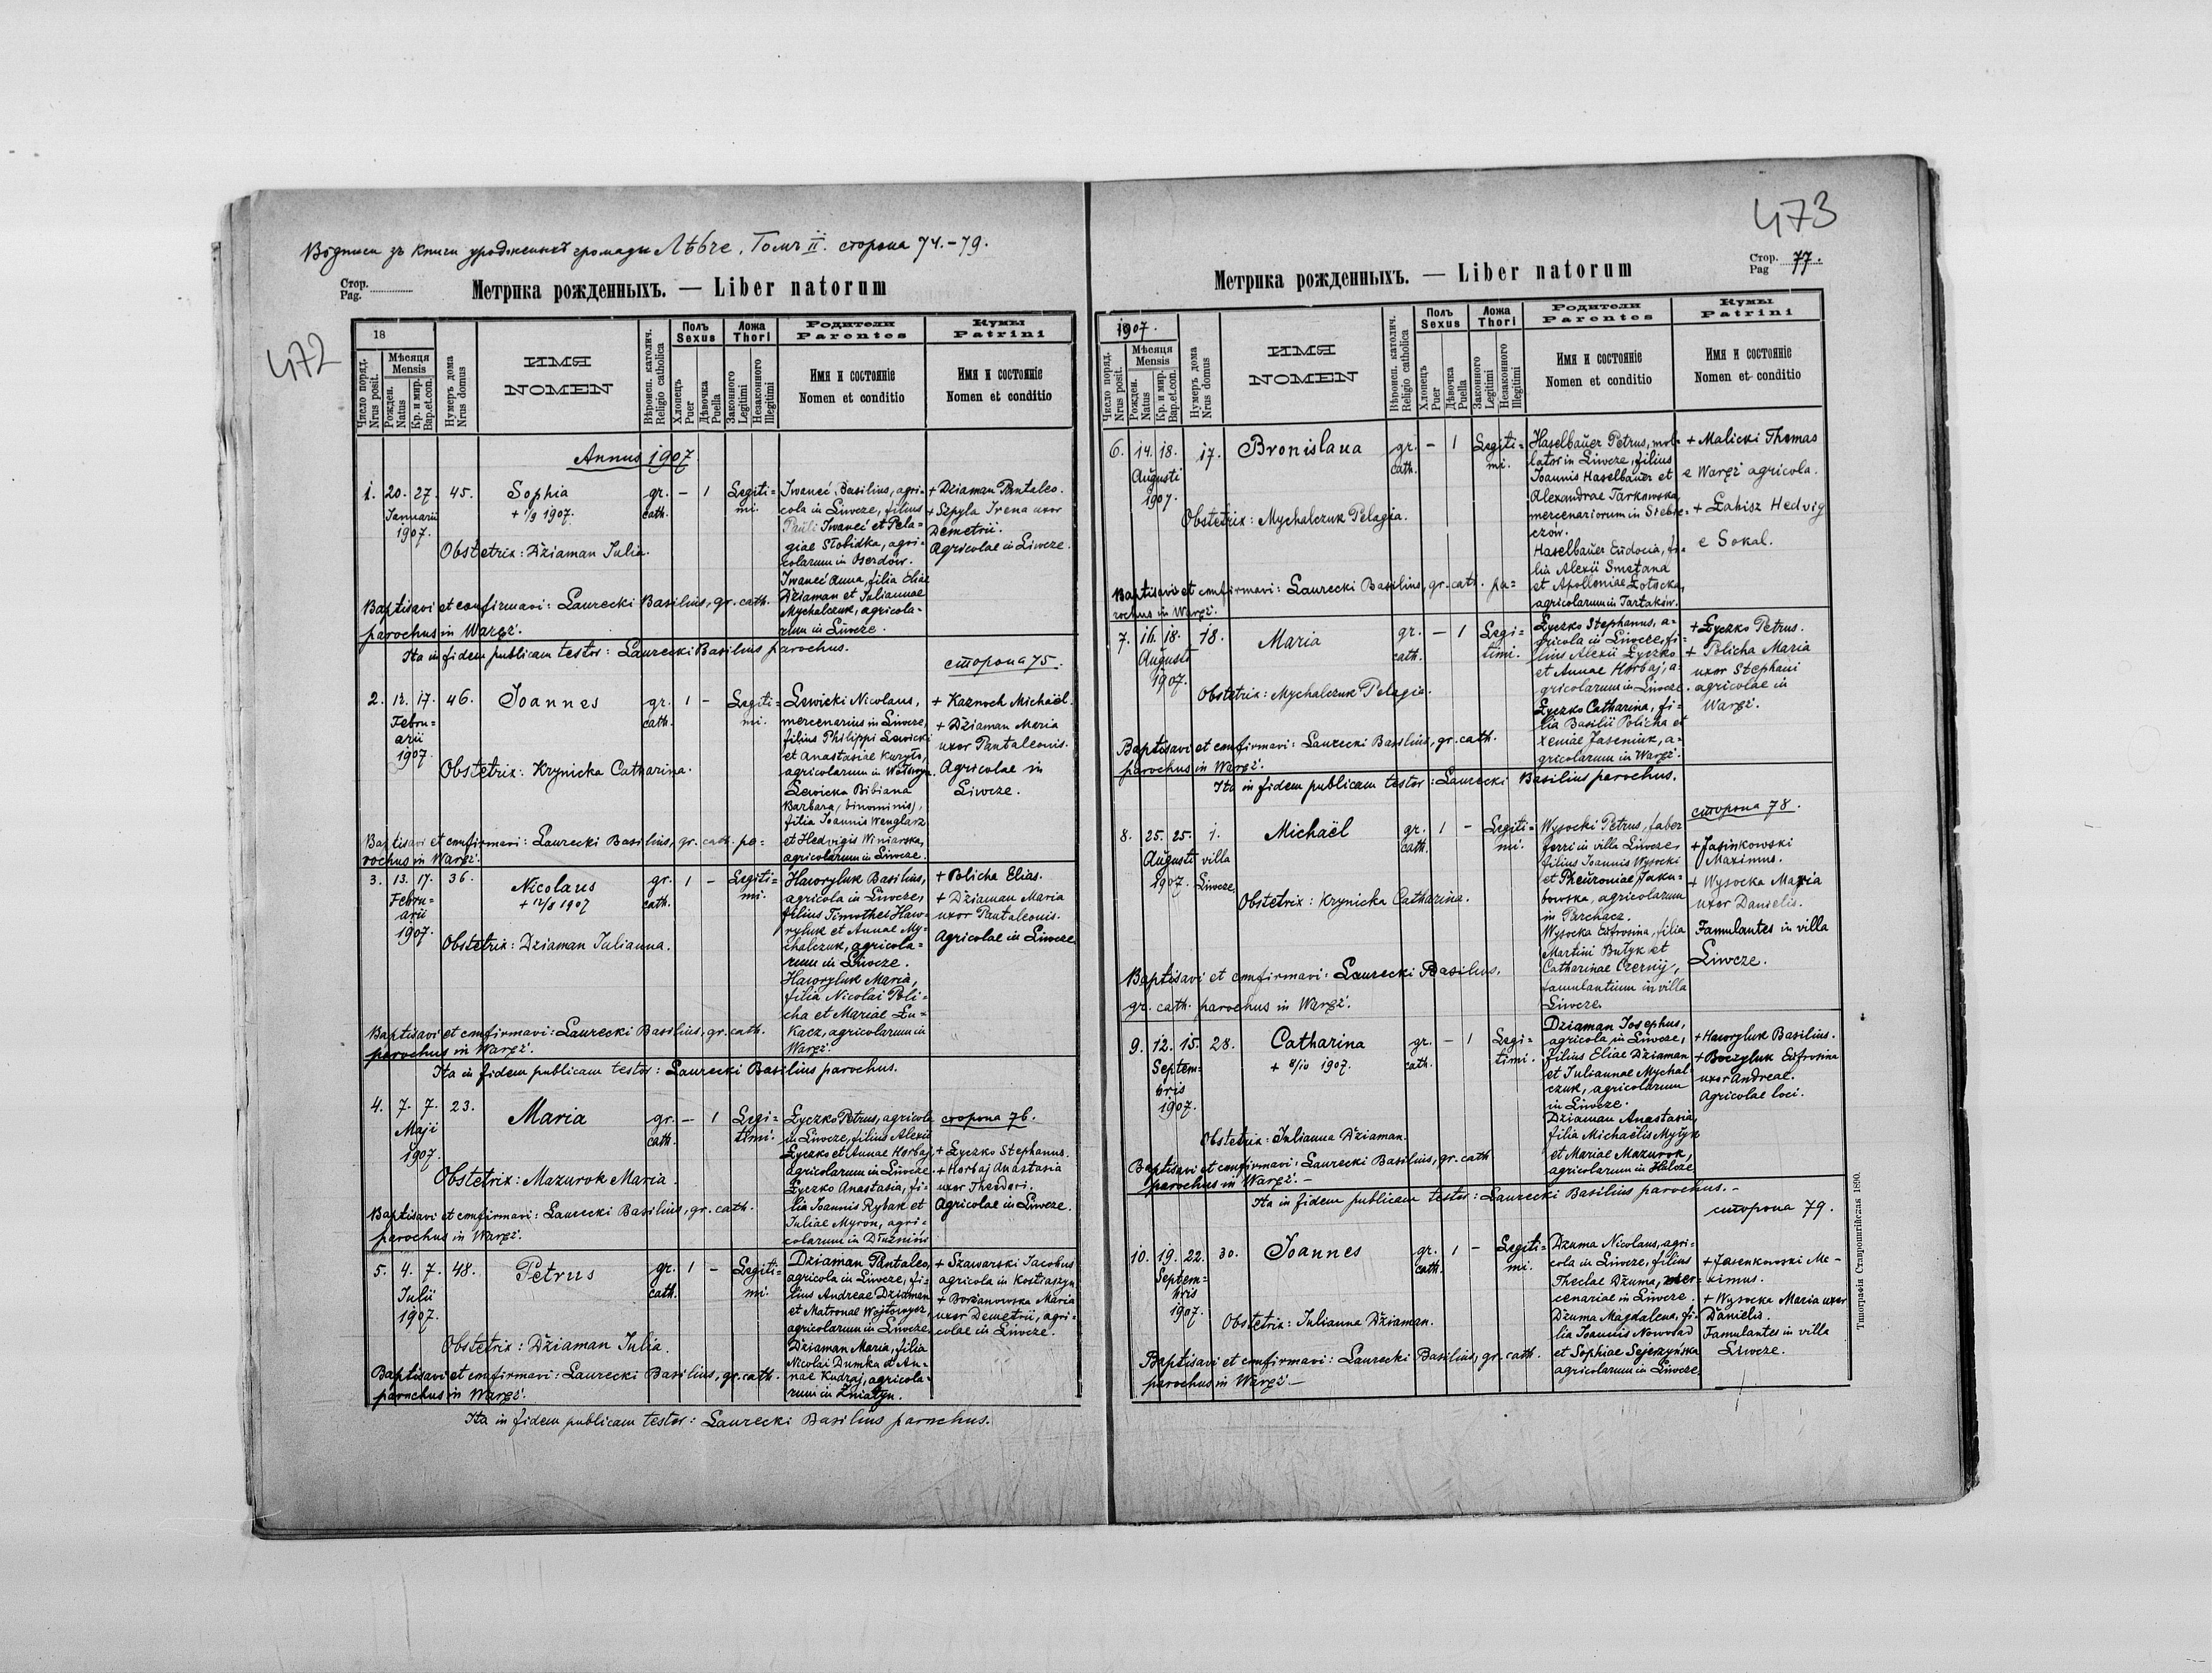 Вôдписи зъ книги уродженыхъ громады Лѣвче. Томъ II. сторона 74.-79.
472
Стор.
Pag.
Метрика рожденныхъ. — Liber natorum
18
Число поряд.
Nrus posit.
Мѣсяця
Mensis
Рожден.
Natus
Кр. и мир.
Bap.et.con.
Нумеръ дома
Nrus domus
ИМЯ
NOMEN
Вѣроисп. католич.
Religio catholica
Полъ
Sexus
Хлопецъ
Puer
Дѣвочка
Puella
Ложа
Thori
Законного
Legitimi
Незаконного
Illegitimi
Родители
Parentes
Имя и состояніе
Nomen et conditio
Кумы
Patrini
Имя и состояніе
Nomen et conditio
Annus 1907
1. 20. 27. 45. Sophia gr. – 1 Legiti=
+ 1/9 1907. cath. mi.
Januarii
1907.
Obstetrix: Dziaman Julia.
Iwaneć Basilius, agri-
cola in Liwcze, filius
Pauli Iwaneć et Pela=
giae Słobidka, agri=
colarum in Oserdów.
Iwaneć Anna, filia Eliae
Dziaman et Juliannae
Mychalczuk, agricola-
rum in Liwcze.
+ Dziaman Pantaleo.
+ Szpyla Irena uxor
Demetrii.
Agricolae in Liwcze.
Baptisavi et confirmavi: Laurecki Basilius, gr. cath.
parochus in Waręż.
Ita in fidem publicam testor: Laurecki Basilius parochus.
сторона 75.
2. 12. 17. 46. Joannes gr. 1 – Legiti=
cath. mi.
Febru=
arii
1907.
Obstetrix: Krynicka Catharina.
Lewicki Nicolaus,
mercenarius in Liwcze,
filius Philippi Lewicki
et Anastasiae Kuryło,
agricolarum in
Lewicka Bibiana
Barbara (binominis),
filia Joannis Wenglarz
et Hedvigis Winiarska,
agricolarum in Liwcze.
+ Kaznoch Michaël.
+ Dziaman Maria
uxor Pantaleonis.
Agricolae in
Liwcze.
Baptisavi et confirmavi: Laurecki Basilius, gr. cath. pa=
rochus in Waręż.
3. 13. 17. 36. Nicolaus gr. 1 – Legiti=
+ 12/8 1907 cath. mi.
Febru=
arii
1907.
Obstetrix: Dziaman Julianna.
Haworyluk Basilius,
agricola in Liwcze,
filius Timothei Hawo-
ryluk et Annae My=
chalczuk, agricola=
rum in Liwcze.
Haworyluk Maria,
filia Nicolai Poli=
cha et Mariae Lu=
kacz, agricolarum in
Waręż.
+ Policha Elias.
+ Dziaman Maria
uxor Pantaleonis.
Agricolae in Liwcze
Baptisavi et confirmavi: Laurecki Basilius, gr. cath.
parochus in Waręż.
Ita in fidem publicam testor: Laurecki Basilius parochus.
4. 7. 7. 23. Maria gr. – 1 Legi=
cath. timi.
Maji
1907.
Obstetrix: Mazurok Maria.
Łyczko Petrus, agricola
in Liwcze, filius Alexii
Łyczko et Annae Horbaj,
agricolarum in Liwcze.
Łyczko Anastasia, fi=
lia Joannis Rybak et
Juliae Myron, agri=
colarum in Dłużniów
сторона 76.
+ Łyczko Stephanus.
+ Horbaj Anastasia
uxor Theodori.
Agricolae in Liwcze.
Baptisavi et confirmavi: Laurecki Basilius, gr. cath.
parochus in Waręż.
5. 4. 7. 48. Petrus gr. 1 – Legiti=
cath. mi.
Julii
1907.
Obstetrix: Dziaman Julia.
Dziaman Pantaleo,
agricola in Liwcze, fi=
lius Andreae Dziaman
et Matronae Wojtowycz,
agricolarum in Liwcze.
Dziaman Maria, filia
Nicolai Dumka et An=
nae Kudraj, agricola=
rum in Żniatyn.
+ Szawarski Jacobus
agricola in Kostiaszyn.
+ Maria
uxor Demetrii, agri=
colae in Liwcze.
Baptisavi et confirmavi: Laurecki Basilius, gr. cath.
parochus in Waręż.
Ita in fidem publicam testor: Laurecki Basilius parochus.
473
Стор.
Pag 77.
Метрика рожденныхъ. — Liber natorum
1907.
Число поряд.
Nrus posit.
Мѣсяця
Mensis
Рожден.
Natus
Кр. и мир.
Bap.et.con.
Нумеръ дома
Nrus domus
ИМЯ
NOMEN
Вѣроисп. католич.
Religio catholica
Полъ
Sexus
Хлопецъ
Puer
Дѣвочка
Puella
Ложа
Thori
Законного
Legitimi
Незаконного
Illegitimi
Родители
Parentes
Имя и состояніе
Nomen et conditio
Кумы
Patrini
Имя и состояніе
Nomen et conditio
6. 14. 18. 17. Bronislaua gr. – 1 Legiti=
cath. mi.
Augusti
1907.
Obstetrix: Mychalczuk Pelagia.
Haselbaŭer Petrus, mol=
lator in Liwcze, filius
Joannis Haselbaŭer et
Alexandrae Tarkowska,
mercenariorum in Siebie=
czów.
Haselbaŭer Eudocia, fi=
lia Alexii Smetana
et Apolloniae Łotocka,
agricolarum in Tartaków.
+ Malicki Thomas
e Waręż agricola.
+ Łahisz Hedvig
e Sokal.
Baptisavi et confirmavi: Laurecki Basilius, gr. cath. pa=
rochus in Waręż.
7. 16. 18. 18. Maria gr. – 1 Legi=
cath. timi.
Augusti
1907.
Obstetrix: Mychalczuk Pelagia.
Łyczko Stephanus, a-
gricola in Liwcze, fi=
lius Alexii Łyczko
et Annae Horbaj, a=
gricolarum in Liwcze.
Łyczko Catharina, fi=
lia Basilii Policha et
Xeniae Jaseniuk, a=
gricolarum in Waręż.
+ Łyczko Petrus.
+ Policha Maria
uxor Stephani
agricolae in
Waręż.
Baptisavi et confirmavi: Laurecki Basilius, gr. cath.
parochus in Waręż.
Ita in fidem publicam testor: Laurecki Basilius parochus.
сторона 78.
8. 25. 25. 1. Michaël gr. 1 – Legiti=
cath. mi.
Augusti villa
1907. Liwcze.
Obstetrix: Krynicka Catharina.
Wysocki Petrus, faber
ferri in villa Liwcze,
filius Joannis Wysocki
et Pheŭroniae Jaku=
bowska, agricolarum
in Parchacz.
Wysocka Eufrosina, filia
Martini Butyk et
Catharinae Czernij,
famulantium in villa
Liwcze.
+ Jasinkowski
Maximus.
+ Wysocka Maria
uxor Danielis.
Famulantes in villa
Liwcze.
Baptisavi et confirmavi: Laurecki Basilius,
gr. cath. parochus in Waręż.
9. 12. 15. 28. Catharina gr. – 1 Legi=
+ 8/10 1907. cath. timi.
Septem=
bris
1907.
Obstetrix: Julianna Dziaman.
Dziaman Josephus,
agricola in Liwcze,
filius Eliae Dziaman
et Juliannae Mychal
czuk, agricolarum
in Liwcze.
Dziaman Anastasia,
filia Michaëlis Mytyk
et Mariae Mazurok,
agricolarum in Hulcze
+ Haworyluk Basilius.
+ Boczyluk Eufrosina
uxor Andreae.
Agricolae loci.
Baptisavi et confirmavi: Laurecki Basilius, gr. cath
parochus in Waręż. –
Ita in fidem publicam testor: Laurecki Basilius parochus. –
сторона 79.
10. 19. 22. 30. Joannes gr. 1 – Legiti=
cath. mi.
Septem=
bris
1907.
Obstetrix: Julianna Dziaman.
Dzuma Nicolaus, agri=
cola in Liwcze, filius
Theclae Dzuma, mer=
cenariae in Liwcze.
Dzuma Magdalena, fi=
lia Joannis Nowosad
et Sophiae Sejerzyńska
agricolarum in Liwcze.
+ Jasenkowski Ma-
ximus.
+ Wysocka Maria uxor
Danielis.
Famulantes in villa
Liwcze.
Baptisavi et confirmavi: Laurecki Basilius, gr. cath.
parochus in Waręż –
Типографія Ставропигійская 1890.